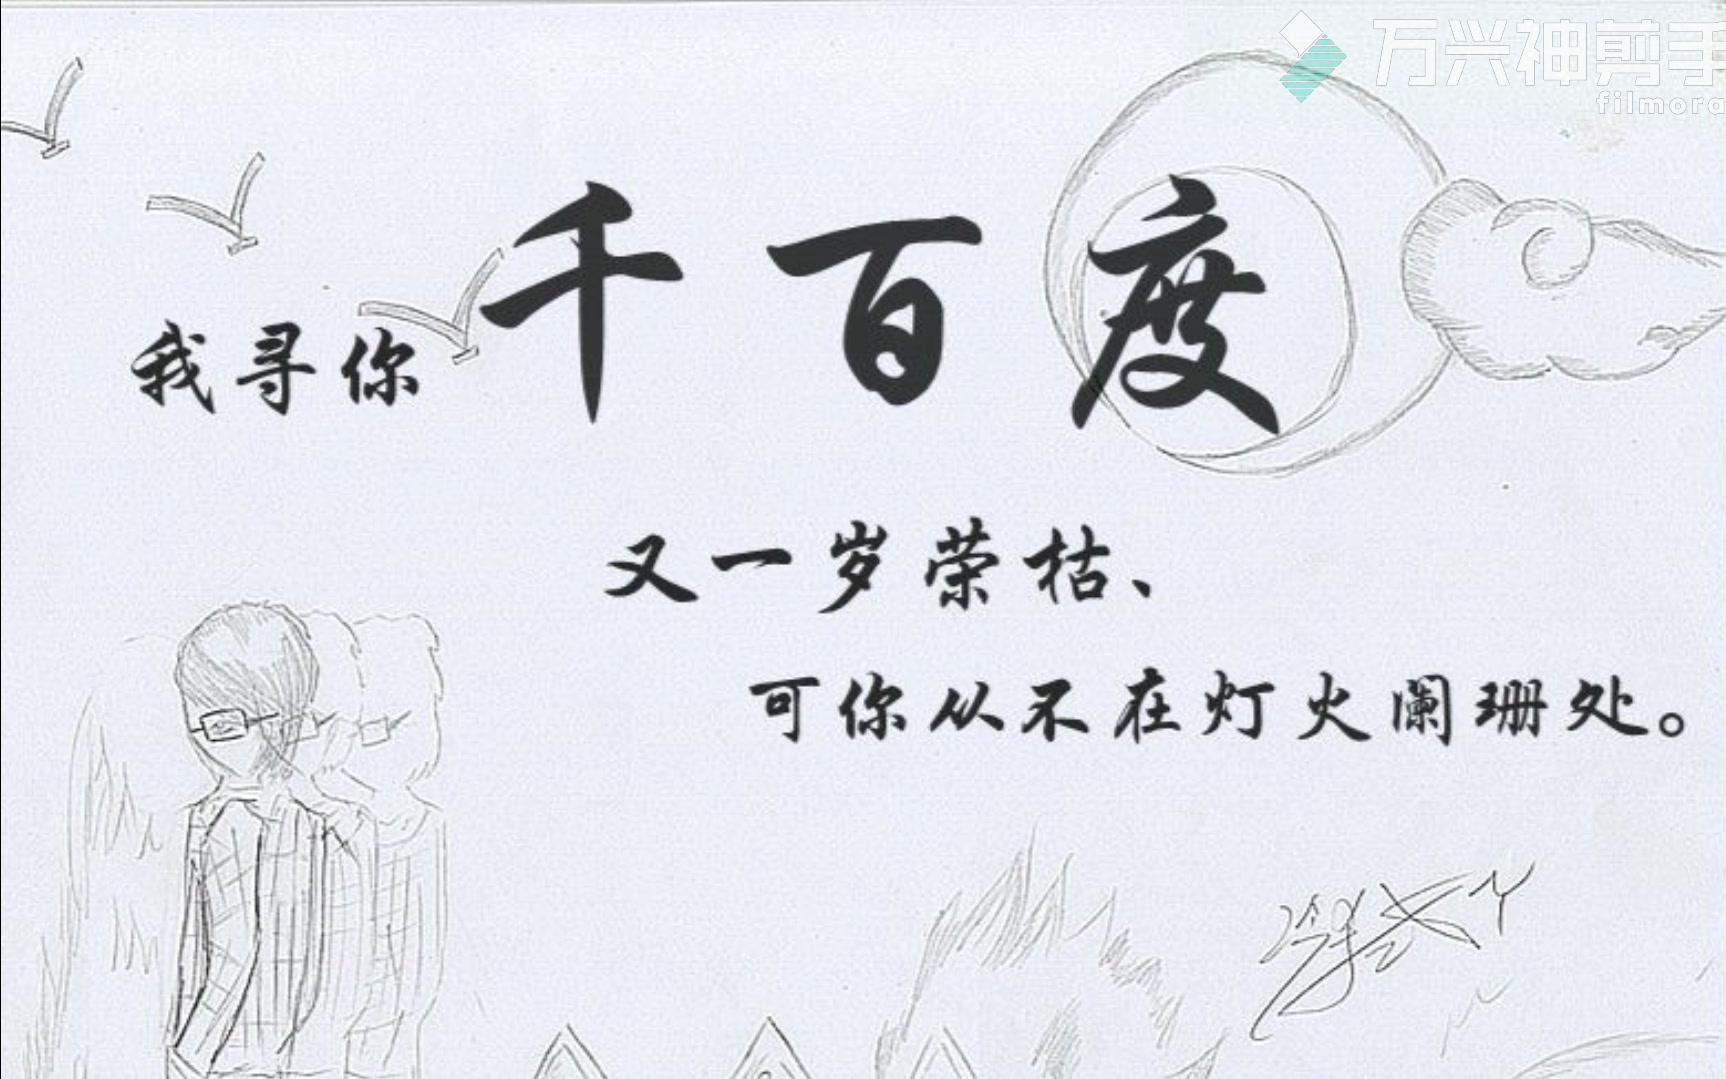 万兴神剪手
filmora
我寻你千百度
又一岁荣枯、
可你从不在灯火阑珊处。